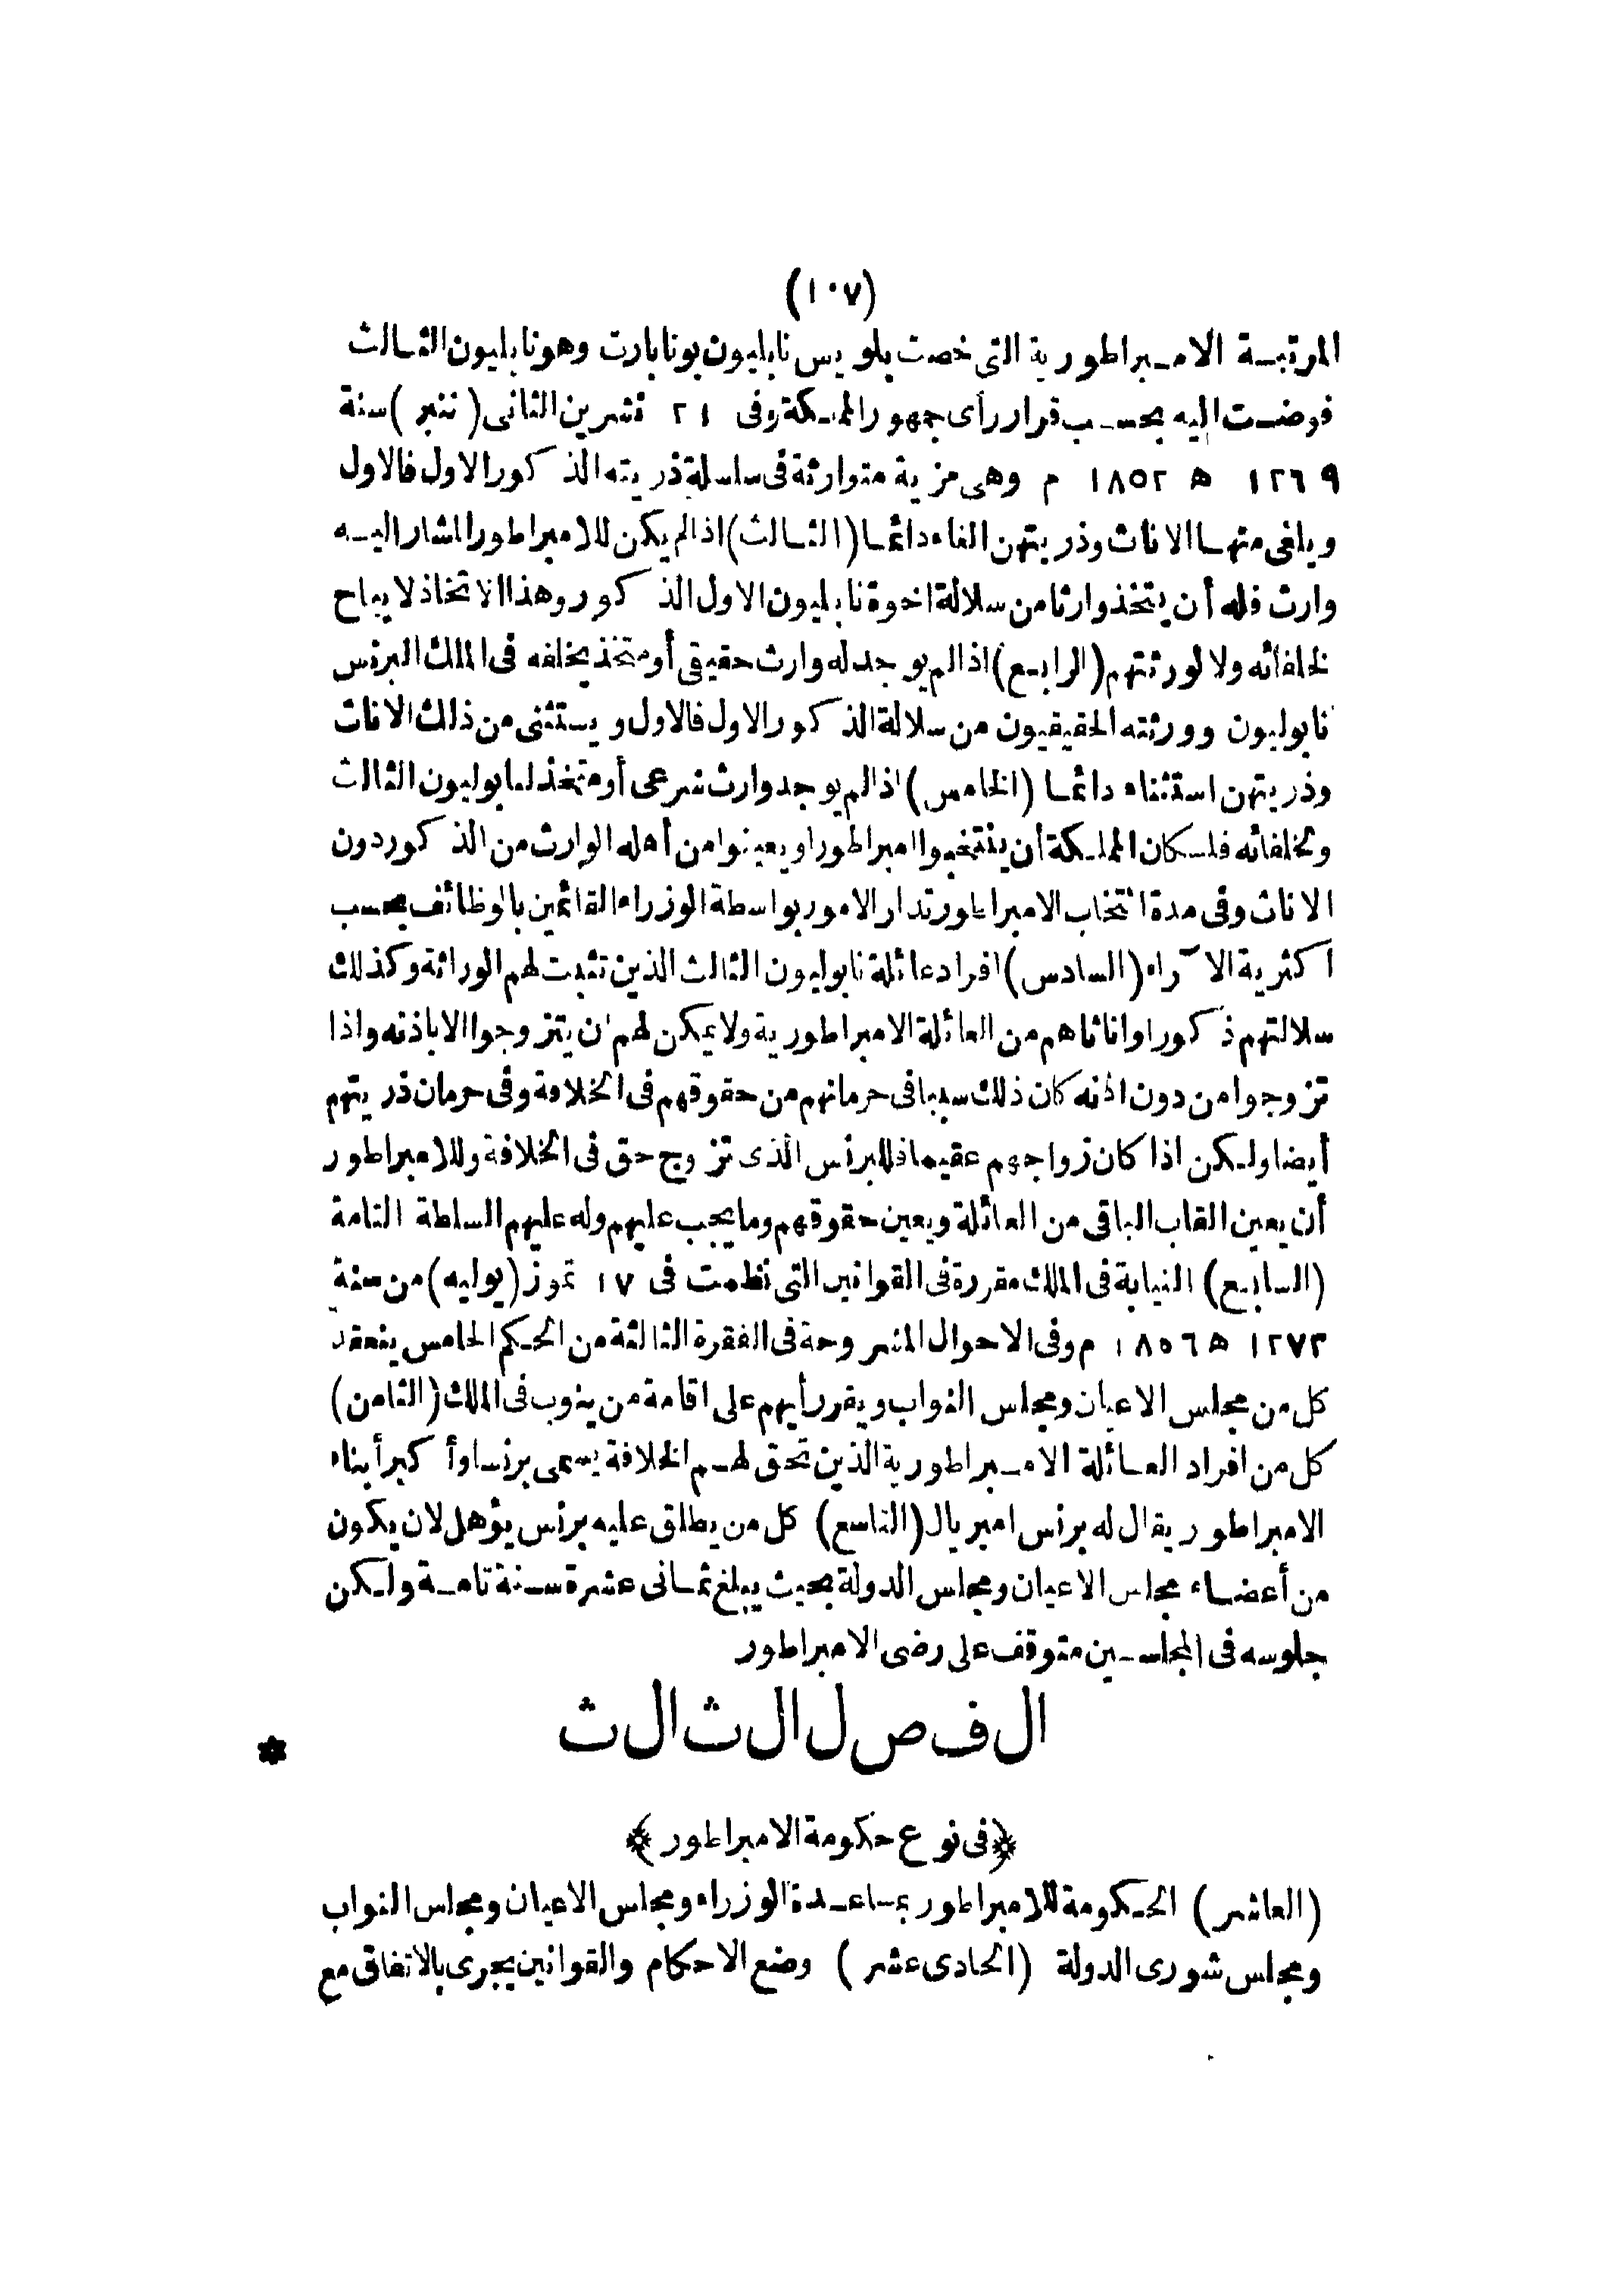 (١٠٧)
المرتبة الامبراطورية التى خصت بلويس نابليون بونابارت وهو نابليون الثالث
فوضت اليه بحسب قرار رأى جمهور المملكة وفى ٢١ تشرين الثانى (ننبر) سنة
١٢٦٩ ه ١٨٥٢ م وهى مزية متوارثة فى سلسلة ذريته الذكور الاول فالاول
ويلغى منها الاناث وذريتهن الغاء دائما (الثالث) اذا لم يكن للامبراطور المشار اليه
وارث فله أن يتخذ وارثا من سلالة اخوة نابليون الاول الذكور وهذا الاتخاذ لا يباح
لخلفائه ولا لورثتهم (الرابع) اذا لم يوجد له وارث حقيقى أو متخذ يخلفه فى الملك البرنس
نابوليون وورثته الحقيقيون من سلالة الذكور الاول فالاول ويستثنى من ذلك الاناث
وذريتهن استثناء دائما (الخامس) اذا لم يوجد وارث شرعى أو متخذ لنابوليون الثالث
ولخلفائه فلسكان المملكة أن ينتخبوا امبراطورا ويعينوا من أهله الوارث من الذكور دون
الاناث وفى مدة انتخاب الامبراطور تدار الامور بواسطة الوزراء القائمين بالوظائف بحسب
اكثرية الآراء (السادس) افراد عائلة نابوليون الثالث الذين تثبت لهم الوراثة وكذلك
سلالتهم ذكورا واناثا هم من العائلة الامبراطورية ولا يمكن لهم ان يتزوجوا الا باذنه واذا
تزوجوا من دون اذنه كان ذلك سببا فى حرمانهم من حقوقهم فى الخلافة وفى حرمان ذريتهم
أيضا ولكن اذا كان زواجهم عقيما فللبرنس الذى تزوج حق فى الخلافة وللامبراطور
أن يعين القاب الباقى من العائلة ويعين حقوقهم وما يجب عليهم وله عليهم السلطة التامة
(السابع) النيابة فى الملك مقررة فى القوانين التى نظمت فى ١٧ تموز (يوليه) من سنة
١٢٧٣ ه ١٨٥٦ م وفى الاحوال المشروحة فى الفقرة الثالثة من الحكم الخامس ينعقد
كل من مجلس الاعيان ومجلس النواب ويقر رأيهم على اقامة من ينوب فى الملك (الثامن)
كل من افراد العائلة الامبراطورية الذين تحق لهم الخلافة يسمى برنسا وأكبر أبناء
الامبراطور يقال له برنس امبريال (التاسع) كل من يطلق عليه برنس يؤهل لان يكون
من أعضاء مجلس الاعيان ومجلس الدولة بحيث يبلغ ثمانى عشرة سنة تامة ولكن
جلوسه فى المجلسين متوقف على رضى الامبراطور
الفصل الثالث
*
﴿فى نوع حكومة الامبراطور﴾
(العاشر) الحكومة للامبراطور بمساعدة الوزراء ومجلس الاعيان ومجلس النواب
ومجلس شورى الدولة (الحادى عشر) وضع الاحكام والقوانين يجرى بالاتفاق مع